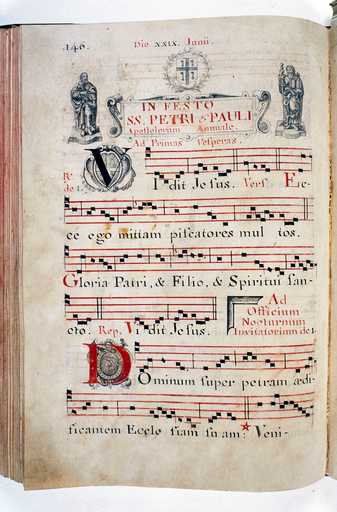 146. Die XXIX. Junii.
IN FESTO
SS. PETRI & PAULI
Apostolorum Annuale.
Ad Primas Vesperas.
R.
de 1.
VI dit Jesus. Vers. Ec-
ce ego mittam piscatores mul tos.
Gloria Patri, & Filio, & Spiritui san-
cto. Rep. Vi dit Jesus.
Ad
Officium
Nocturnum
Invitatorium de 1.
DOminum super petram ædi-
ficantem Eccle siam su am: Veni-